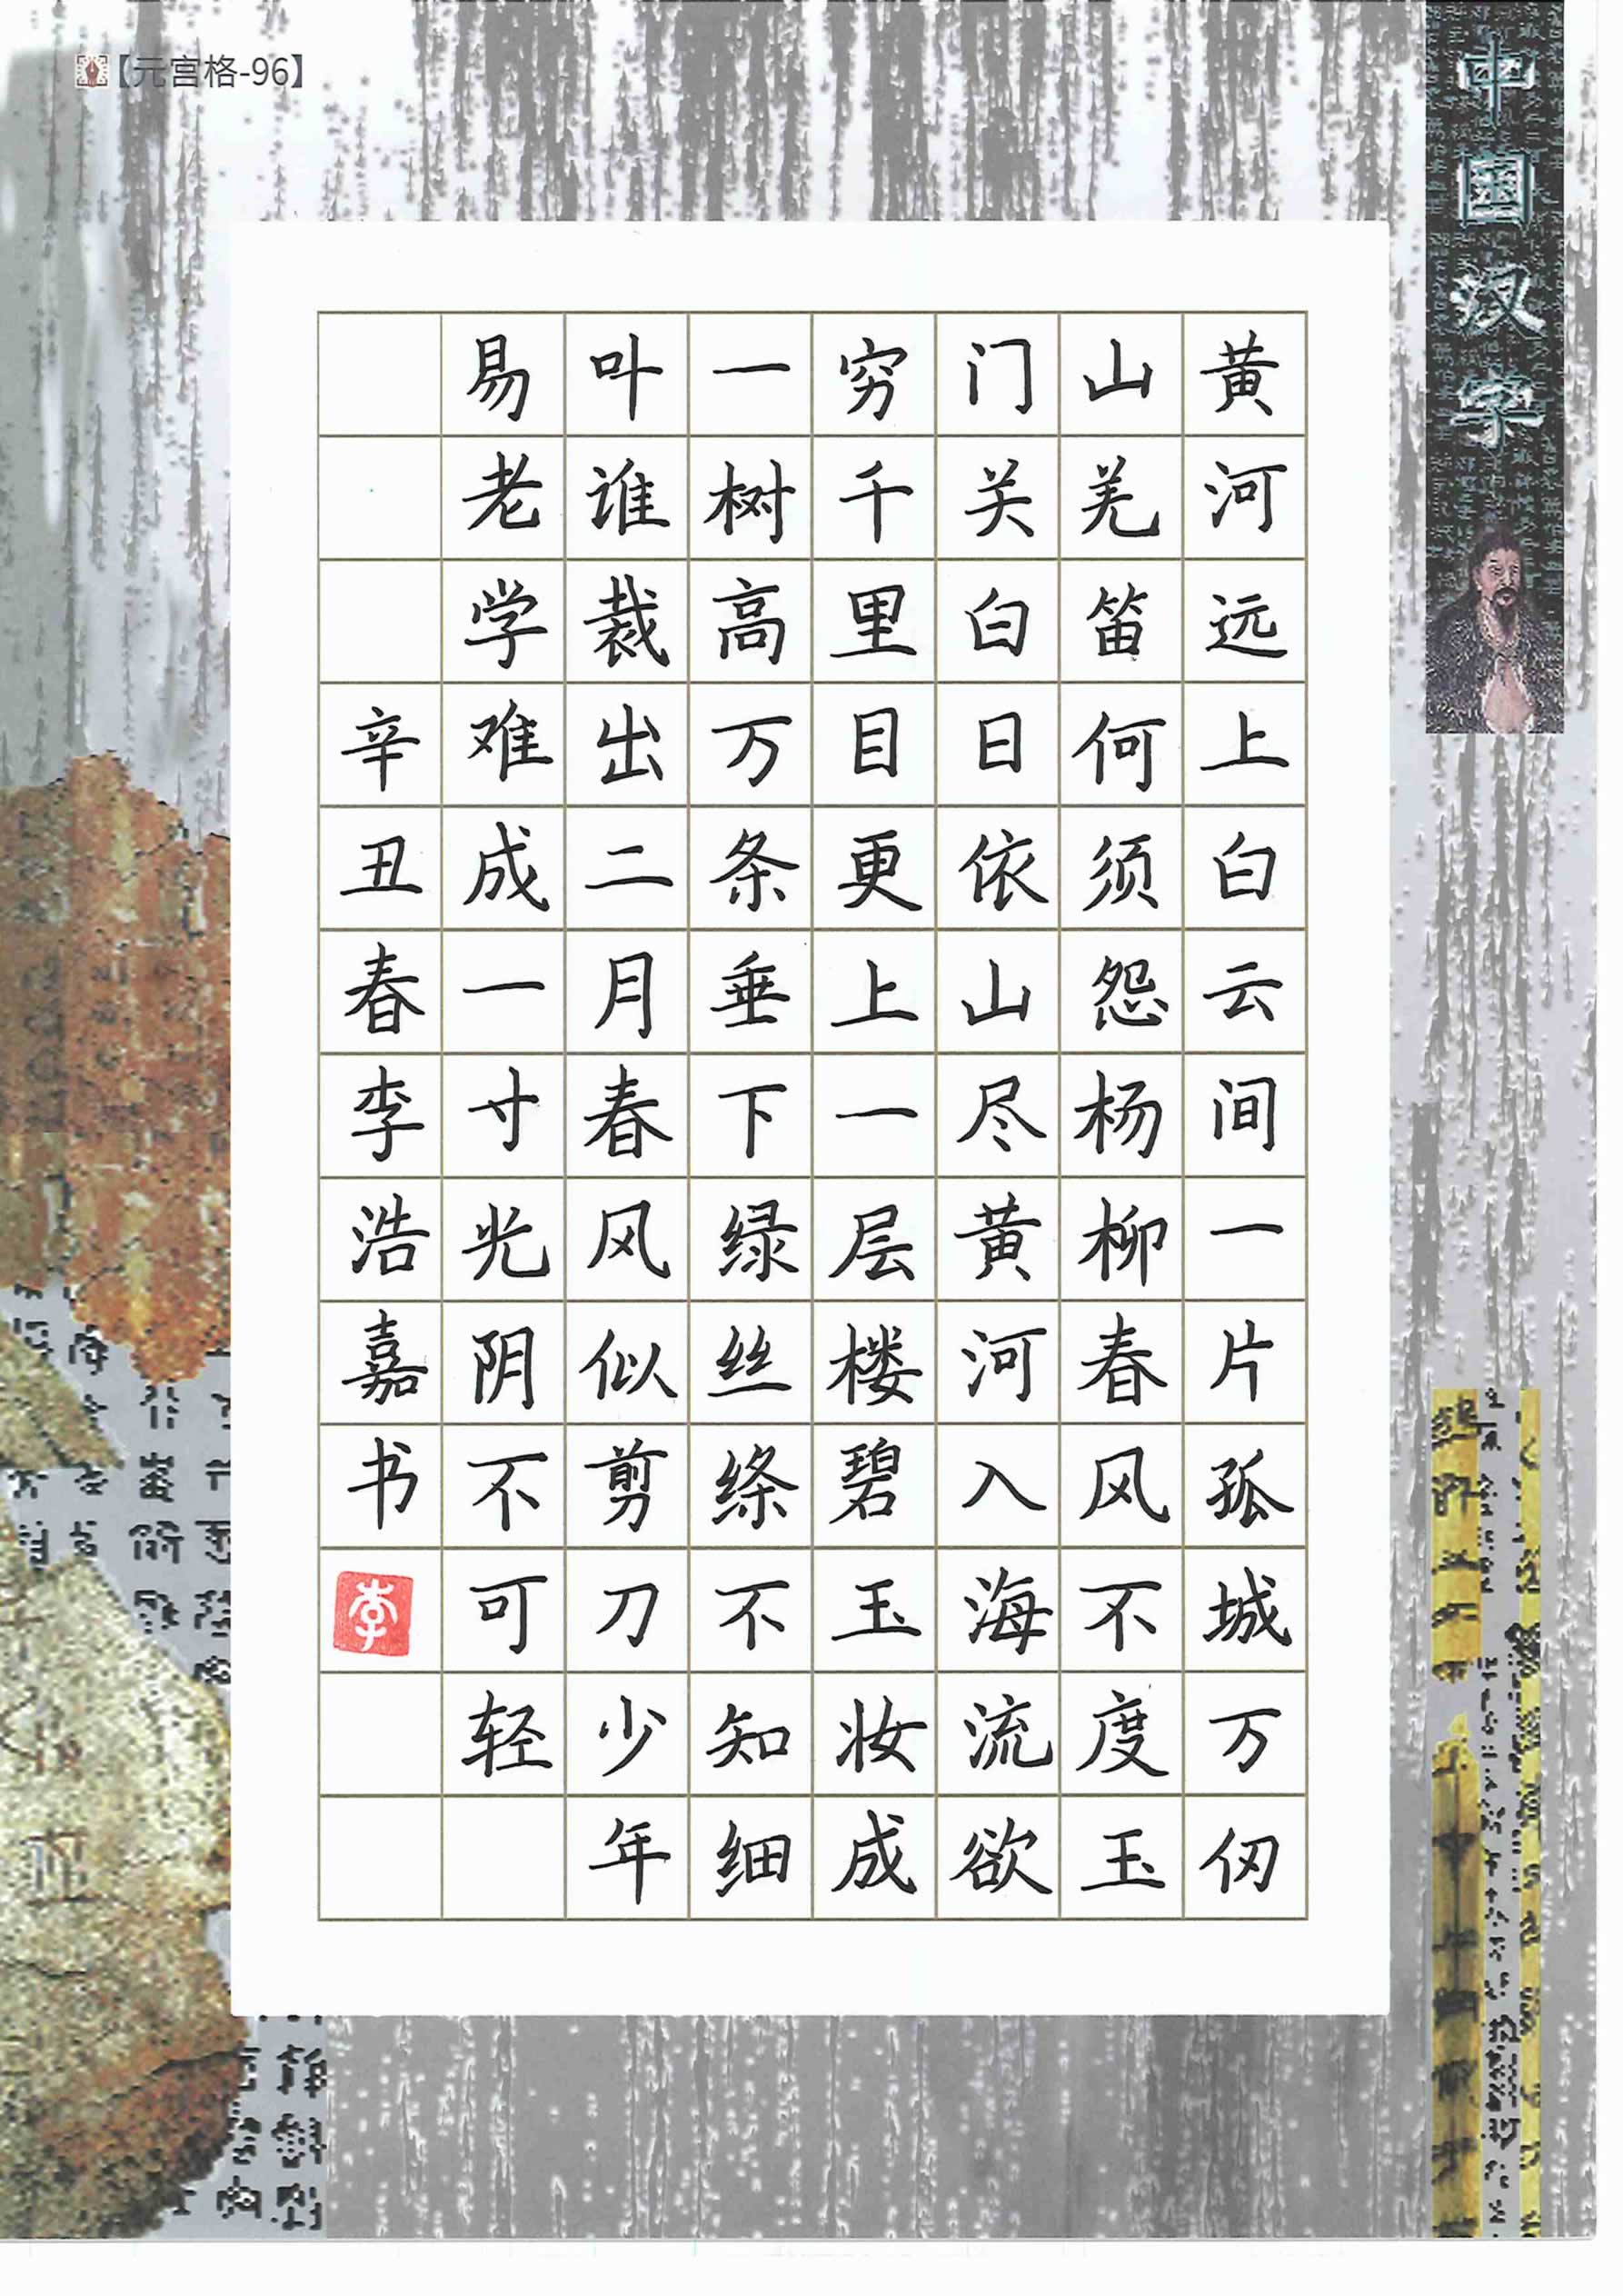 【元宫格-96】
中国汉字
黄河远上白云间一片孤城万仞
山羌笛何须怨杨柳春风不度玉
门关白日依山尽黄河入海流欲
穷千里目更上一层楼碧玉妆成
一树高万条垂下绿丝绦不知细
叶谁裁出二月春风似剪刀少年
易老学难成一寸光阴不可轻
辛丑春李浩嘉书
李